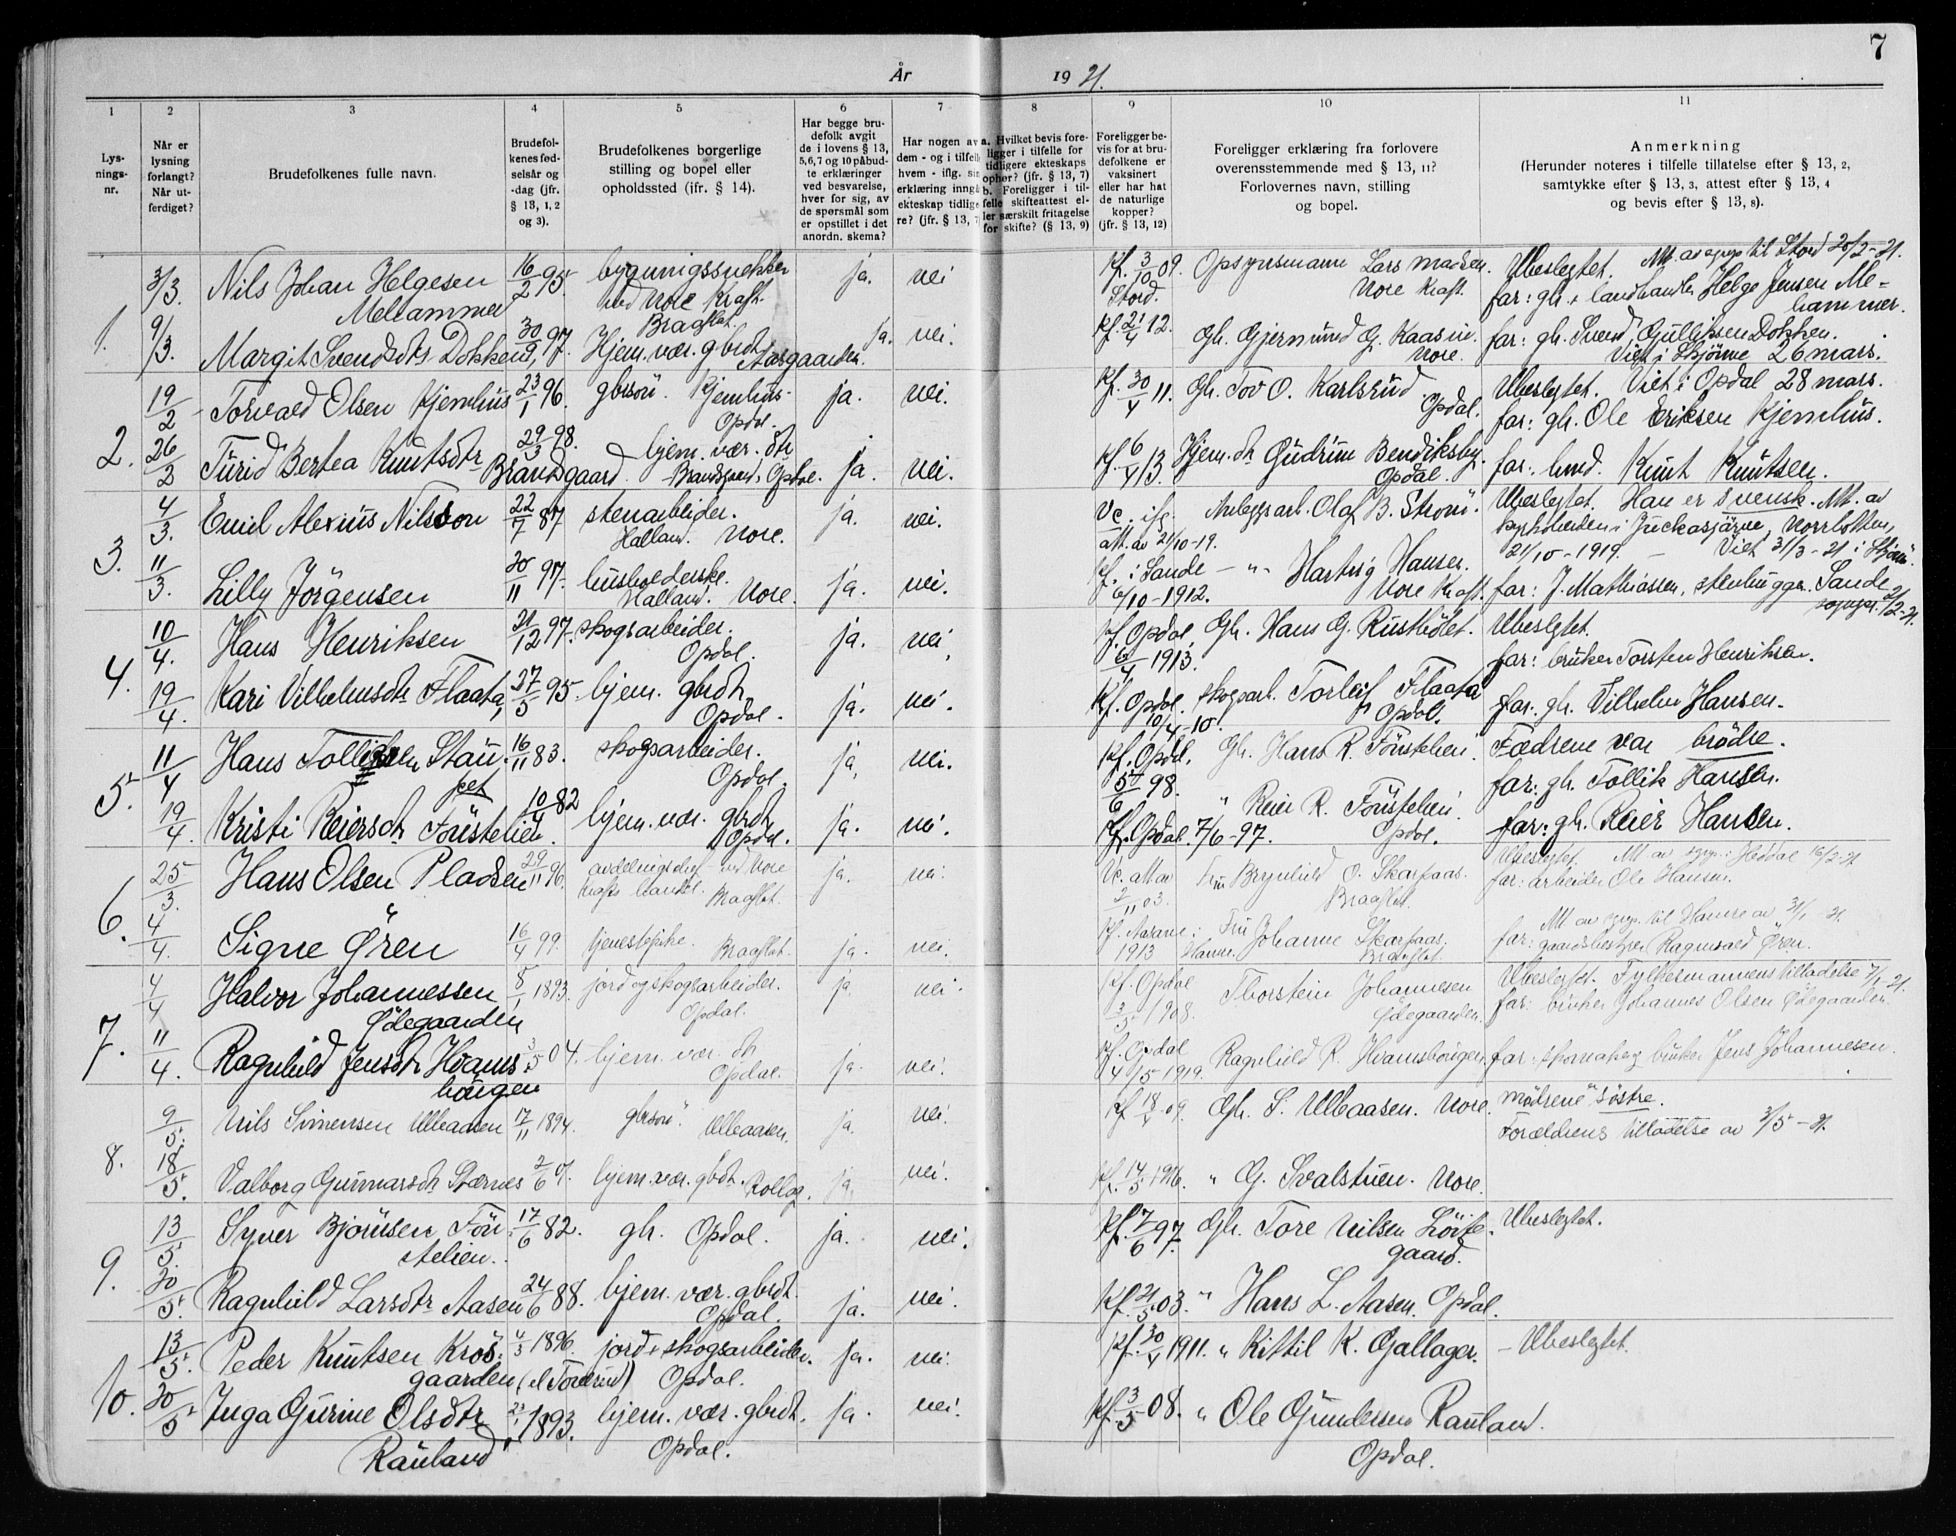 7
År 1921.
1 2 3 4 5 6 7 8 9 10 11
Lys-
nings-
nr.
Når er
lysning
forlangt?
Når ut-
ferdiget?
Brudefolkenes fulle navn.
Brudefol-
kenes fød-
selsår og
-dag (jfr.
§ 13, 1, 2
og 3).
Brudefolkenes borgerlige
stilling og bopel eller
opholdssted (jfr. § 14).
Har begge bru-
defolk avgit
de i lovens § 13,
5,6,7 og 10 påbud-
te erklæringer
ved besvarelse,
hver for sig, av
de spørsmål som
er opstillet i det
anordn. skema?
Har nogen av
dem - og i tilfelle
hvem - iflg. sin
erklæring inngå
ekteskap tidlige-
re? (jfr. § 13, 7
a. Hvilket bevis fore-
ligger i tilfelle for
tidligere ekteskaps
ophør? (jfr. § 13, 7)
b. Foreligger i til-
felle skifteattest el-
ler særskilt fritagelse
for skifte? (§ 13, 9)
Foreligger be-
vis for at bru-
defolkene er
vaksinert
eller har hat
de naturlige
kopper?
(jfr. § 13, 12)
Foreligger erklæring fra forlovere
overensstemmende med § 13, 11?
Forlovernes navn, stilling
og bopel.
Anmerkning
(Herunder noteres i tilfelle tillatelse efter § 13, 2,
samtykke efter § 13, 3, attest efter § 13, 4
og bevis efter § 13, 8).
1. 3/3. Nils Johan Helgesen 16/2 95. bygningssnekker ja. nei Kf. 3/10 09. Opsynsmann Lars Madsen. Ubeslegtet. Att. av sogpr. til Stord 20/2-21.
Mehammer ved Nore Kraft. Stord. Nore Kraft. far: gh. & landhandler Helge Jensen Me-
Bragflat. hammer.
9/3. Margit Svendsdtr Dokken 30/9 97. Hjem. vær. gbrdt ja. nei. Kf. 21/4 12. Gh. Gjermund G. Kaasin. far: gh. Svend Gulliksen Dokken.
Aasgaarden. Nore. Viet i Skjönne 26 mars.
2. 19/2 Torvald Olsen Kjemhus 23/1 96. gbrsön. Kjemhus. ja. nei. Kf. 30/4 11. Gh. Tov O. Karlsrud Ubeslegtet. Viet i Opdal 28 mars.
Opdal. Opdal. far: gh. Ole Eriksen Kjemhus.
26/2 Turid Bertea Knutsdtr 29/3 98. hjem. vær. dtr ja. nei. Kf. 6/4 13. Hjem. dtr Gudrun Bendiksby. far: hmd. Knut Knutsen.
Brandsgaard. Brandsgaard, Opdal. Opdal.
3. 4/3. Emil Alexius Nilsson 22/7 87 stenarbeider. ja. nei. Vc. ifg. Anleggsarb. Olaf B. Ström. Ubeslegtet. Han er svensk. Att. av
Halland. Nore. att. av 21/10-19. kyrkoherden i Juckasjärve, Norrbotten,
21/10-1919. - Viet 31/3-21 i Skjönne.
11/3. Lilly Jörgensen 20/11 97. husholderske. ja. nei. Kf. i Sande - " - Hartvig Hansen.
Halland. Nore. 6/10-1912. Nore Kraft. far: J. Mathiassen, stenhugger. Sande
sognepr. 2/2-21.
4. 10/4. Hans Henriksen 21/12 97. skogsarbeider. ja. nei. Kf. Opdal. Gh. Hans G. Rusthölet. Ubeslegtet.
Opdal. 6/4 1913. far: bruker Torsten Henriksen.
19/4. Kari Vilhelmsdtr Flaata, 27/5 95. hjem. gbrdt. ja. nei. Kf. Opdal. skogsarb. Torleif Flaata far: gh. Vilhelm Hansen.
Opdal. 10/4-10. Opdal.
5. 11/4 Hans Tolliksen Stau- 16/11 83. skogsarbeider. ja, nei. Kf. Opdal. Gh. Hans R. Fönstelien. Fædrene var brödre.
set Opdal. 5/6 98. far: gh. Tollik Hansen.
19/4. Kristi Reiersdtr Fönstelien. 10/4 82 hjem. vær. gbrdt. ja. nei. " Reier R. Fönstelien.
Opdal. Kf. Opdal. 7/6-97. Opdal. far: gh. Reier Hansen.
6. 25/3. Hans Olsen Pladsen 29/11 96. avdelingschef ved Nore ja. nei. Vc. att av Fru Brynhild O. Skarpaas. Ubeslegtet. Att av sogpr. i Heddal 16/2-21.
Bragflat. 2/11 03. Bragflat. far: arbeider Ole Hansen.
4/4. Signe Ören 16/4 99. tjenestepike. Bragflat. ja. nei. Fru Johanne Skarpaas. Att av sogpr. til Hamre av 31/1 21.
1913 Hamre. Bragflat. far: gaardsbestyrer Ragnvald Ören.
7. 4/4 Halvor Johannessen 8/1 1893. jord og skogsarbeider. ja nei. Kf. Opdal Thorstein Johannesen Ubeslegtet. Fylkesmannens tilladelse 21.
Ödegaarden Opdal. 3/5 1908. Ödegaarden. far: bruker Johannes Olsen Ödegaarden.
11/4. Ragnhild Jensdtr Hvams- 3/5 04. hjem. vær. dtr ja. nei. Kf. Opdal Ragnhild R. Hvamshougen. far: skomaker & bruker Jens Johannesen.
hougen Opdal. 4/5 1919.
8. 9/5. Nils Simensen Ulleaasen 17/11 1894. gbrsön. Ulleaasen. ja. nei. Kf. 18/4 09. Gh. S. Ulleaasen. Nore. mödrene söstre.
Forældrenes tilladelse av 2/5-21.
18/5. Valborg Gunnarsdtr Stærnes 2/6 01. hjem. vær. gbrdt. Rollag. ja. nei. Kf. 14/5 1916. " G. Svalstuen. Nore.
9. 13/5. Syver Bjornsen Fön- 17/6 82. gh. Opdal. ja. nei. Kf. 7/6 97. Gh. Tore Nilsen Löite- Ubeslegtet.
stelien. gaard.
20/5. Ragnhild Larsdtr Aasen 24/6 88. hjem. vær. gbrdt. ja. nei. Kf. 21/5 03. " Hans L. Aasen. Opdal.
Opdal.
10. 13/5. Peder Knutsen Kros- 4/3 1896. jord & skogsarbeider. ja. nei. Kf. 30/4 1911. " Kittil K. Gallager. - Ubeslegtet.
gaarden (el Toverud) Opdal.
20/5. Inga Gurine Olsdtr 23/1 1893. hjem. vær. gbrdt. ja. nei. Kf. 3/5 08. " Ole Gundersen Rauland.
Rauland Opdal. Opdal.